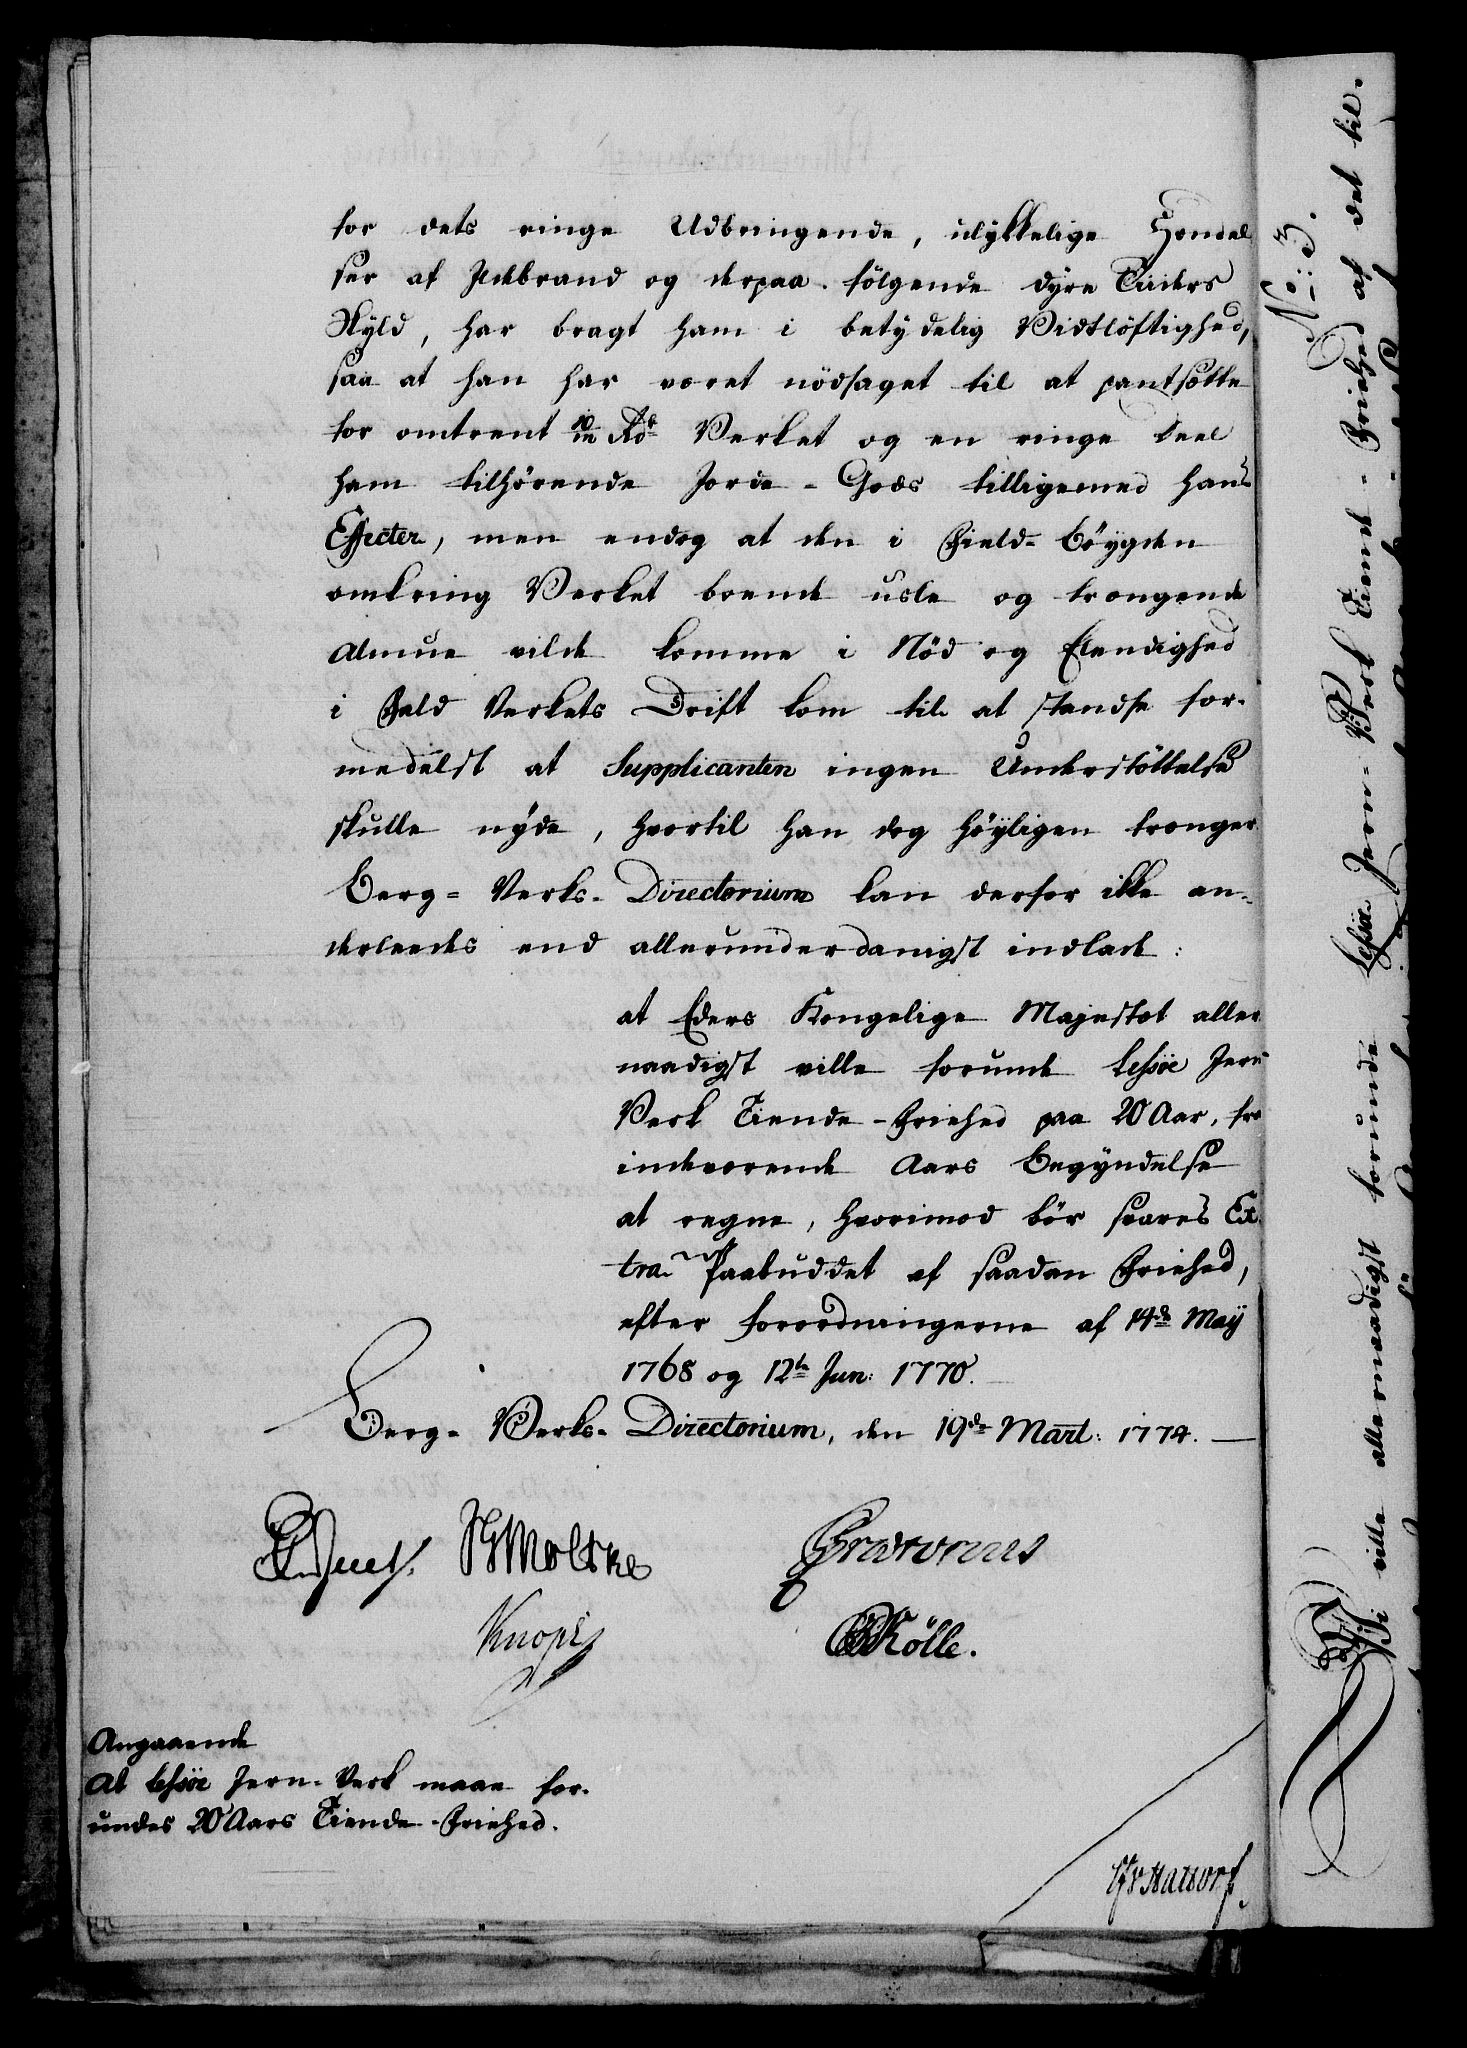 for dets ringe Udbringende, ulykkelige Hændel
ser af Ildebrand og derpaa følgende dyre Tiiders
Skyld, har bragt ham i betydelig Vidtløftighed,
saa at han har været nødsaget til at pantsætte
for omtrent 10/m Rdr Verket og en ringe Deel
ham tilhørende Jorde-Gods tilligemed hans
Effecter, men endog at den i Field-Bøygden
omkring Verket boende usle og trængende
Almue vilde komme i Nød og Elendighed
i Fald Verkets Drift kom til at standse for-
medelst at Supplicanten ingen Understøttelse
skulle nyde, hvortil han dog høyligen trænger
Berg-Verks-Directorium kan derfor ikke an-
derleedes end allerunderdanigst indlade:
at Eders Kongelige Majestæt aller
naadigst ville forunde Lessøe Jern
Verk Tiende-Friehed paa 20 Aar, fra
indeværende Aars Begyndelse
at regne, hvorimod bør svares Ex-
tra Paabuddet af saadan Friehed,
efter Forordningerne af 14de Maÿ
1768 og 12te Jun: 1770.
Berg-Verks-Directorium, den 19de Mart: 1774.
JHMoltke Prætorius
Knoph Kølle.
Angaaende
At Lessøe Jern-Verk maae for-
undes 20 Aars Tiende-Friehed.
No: 3.
Vi ville allernaadigst forunde Lessøe Jern-Verk Tiende-Friehed af det til.